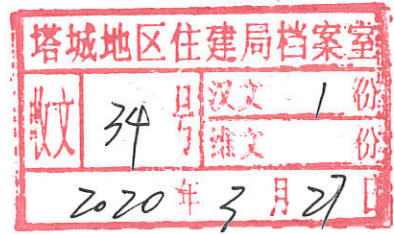 塔城地区住建局档案室
收文 34 号 汉文 1 份
维文 份
2020 年 3 月 27 日